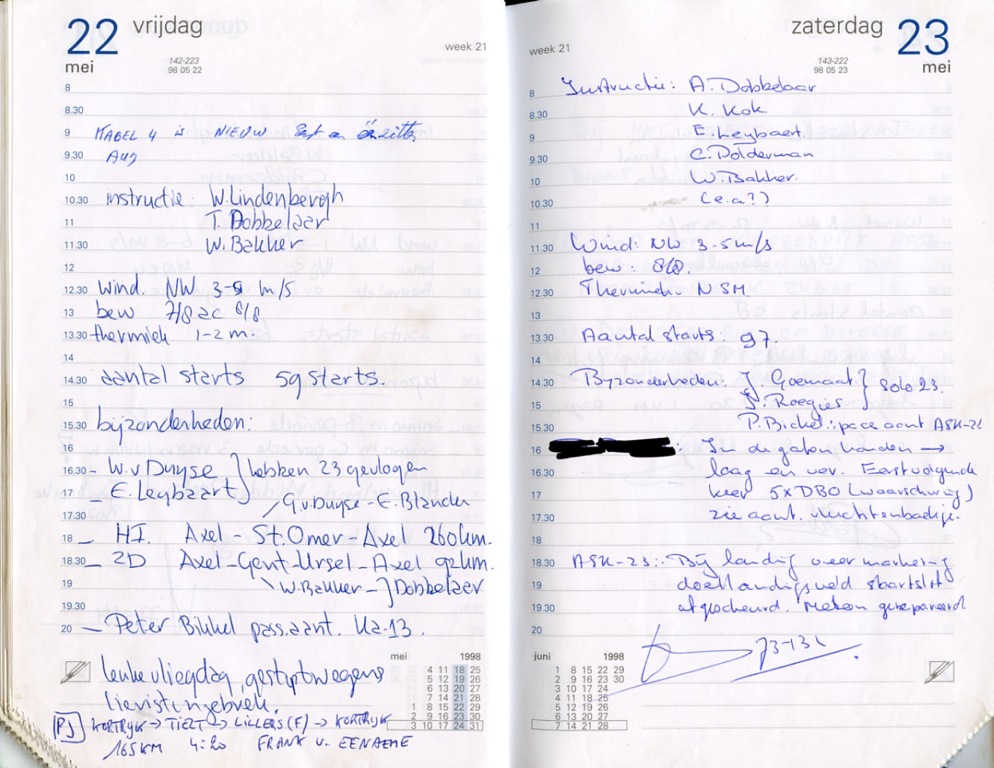 22 vrijdag
mei
142-223
98 05 22
week 21
8
8.30
9 KABEL 4 is NIEUW
9.30 AUG
10
10.30 instructie: W. Lindenbergh
11 T. Dobbelaar
11.30 W. Bakker
12
12.30 wind. NW 3-5 m/s
13 bew 7/8 ac 8/8
13.30 thermiek 1-2 m.
14
14.30 aantal starts 59 starts.
15
15.30 bijzonderheden:
16
16.30 - W. v Duyse } hebben 23 gevlogen
17 - E. Leybaart
17.30 G.v.Duyse - E. Blander
18 - HI. Axel - St. Omer - Axel 260 km.
18.30 - 2D Axel-Gent-Ursel-Axel 92km.
19 \ W. Bakker - ] Dobbelaer
19.30
20 - Peter Bikkel pass.aant. Ka-13.
leuke vliegdag, gestopt wegens
lieristingebrek.
PJ KORTRIJK → TIELT → LILLERS (F) → KORTRIJK
165 KM 4:20 FRANK v. EENAEME
mei 1998
4 11 18 25
5 12 19 26
6 13 20 27
7 14 21 28
1 8 15 22 29
2 9 16 23 30
3 10 17 24 31
zaterdag 23
mei
week 21
143-222
98 05 23
8 Instructie: A. Dobbelaar
8.30 K. Kok
9 E. Leybaert
9.30 C. Dolderman
10 W. Bakker.
10.30 (e.a?)
11
11.30 Wind: NW 3-5 m/s
12 bew: 8/8.
12.30 Thermiek: NSM
13
13.30 Aantal starts: 97.
14
14.30 Byzonderheden: J. Goemaat } Solo 23.
15 J. Roegies
15.30 P. Bickel: pace aant ASK-21
16 : In de gaten houden →
16.30 laag en ver. Eerstvolgende
17 keer 5x DBO (waarschuwing)
17.30 zie aant. vluchtenboekje.
18
18.30 ASK-23: Bij landing over markering
19 doellandingsveld staartslof
19.30 afgescheurd. Meteen gerepareerd.
20
73-131
juni 1998
1 8 15 22 29
2 9 16 23 30
3 10 17 24
4 11 18 25
5 12 19 26
6 13 20 27
7 14 21 28